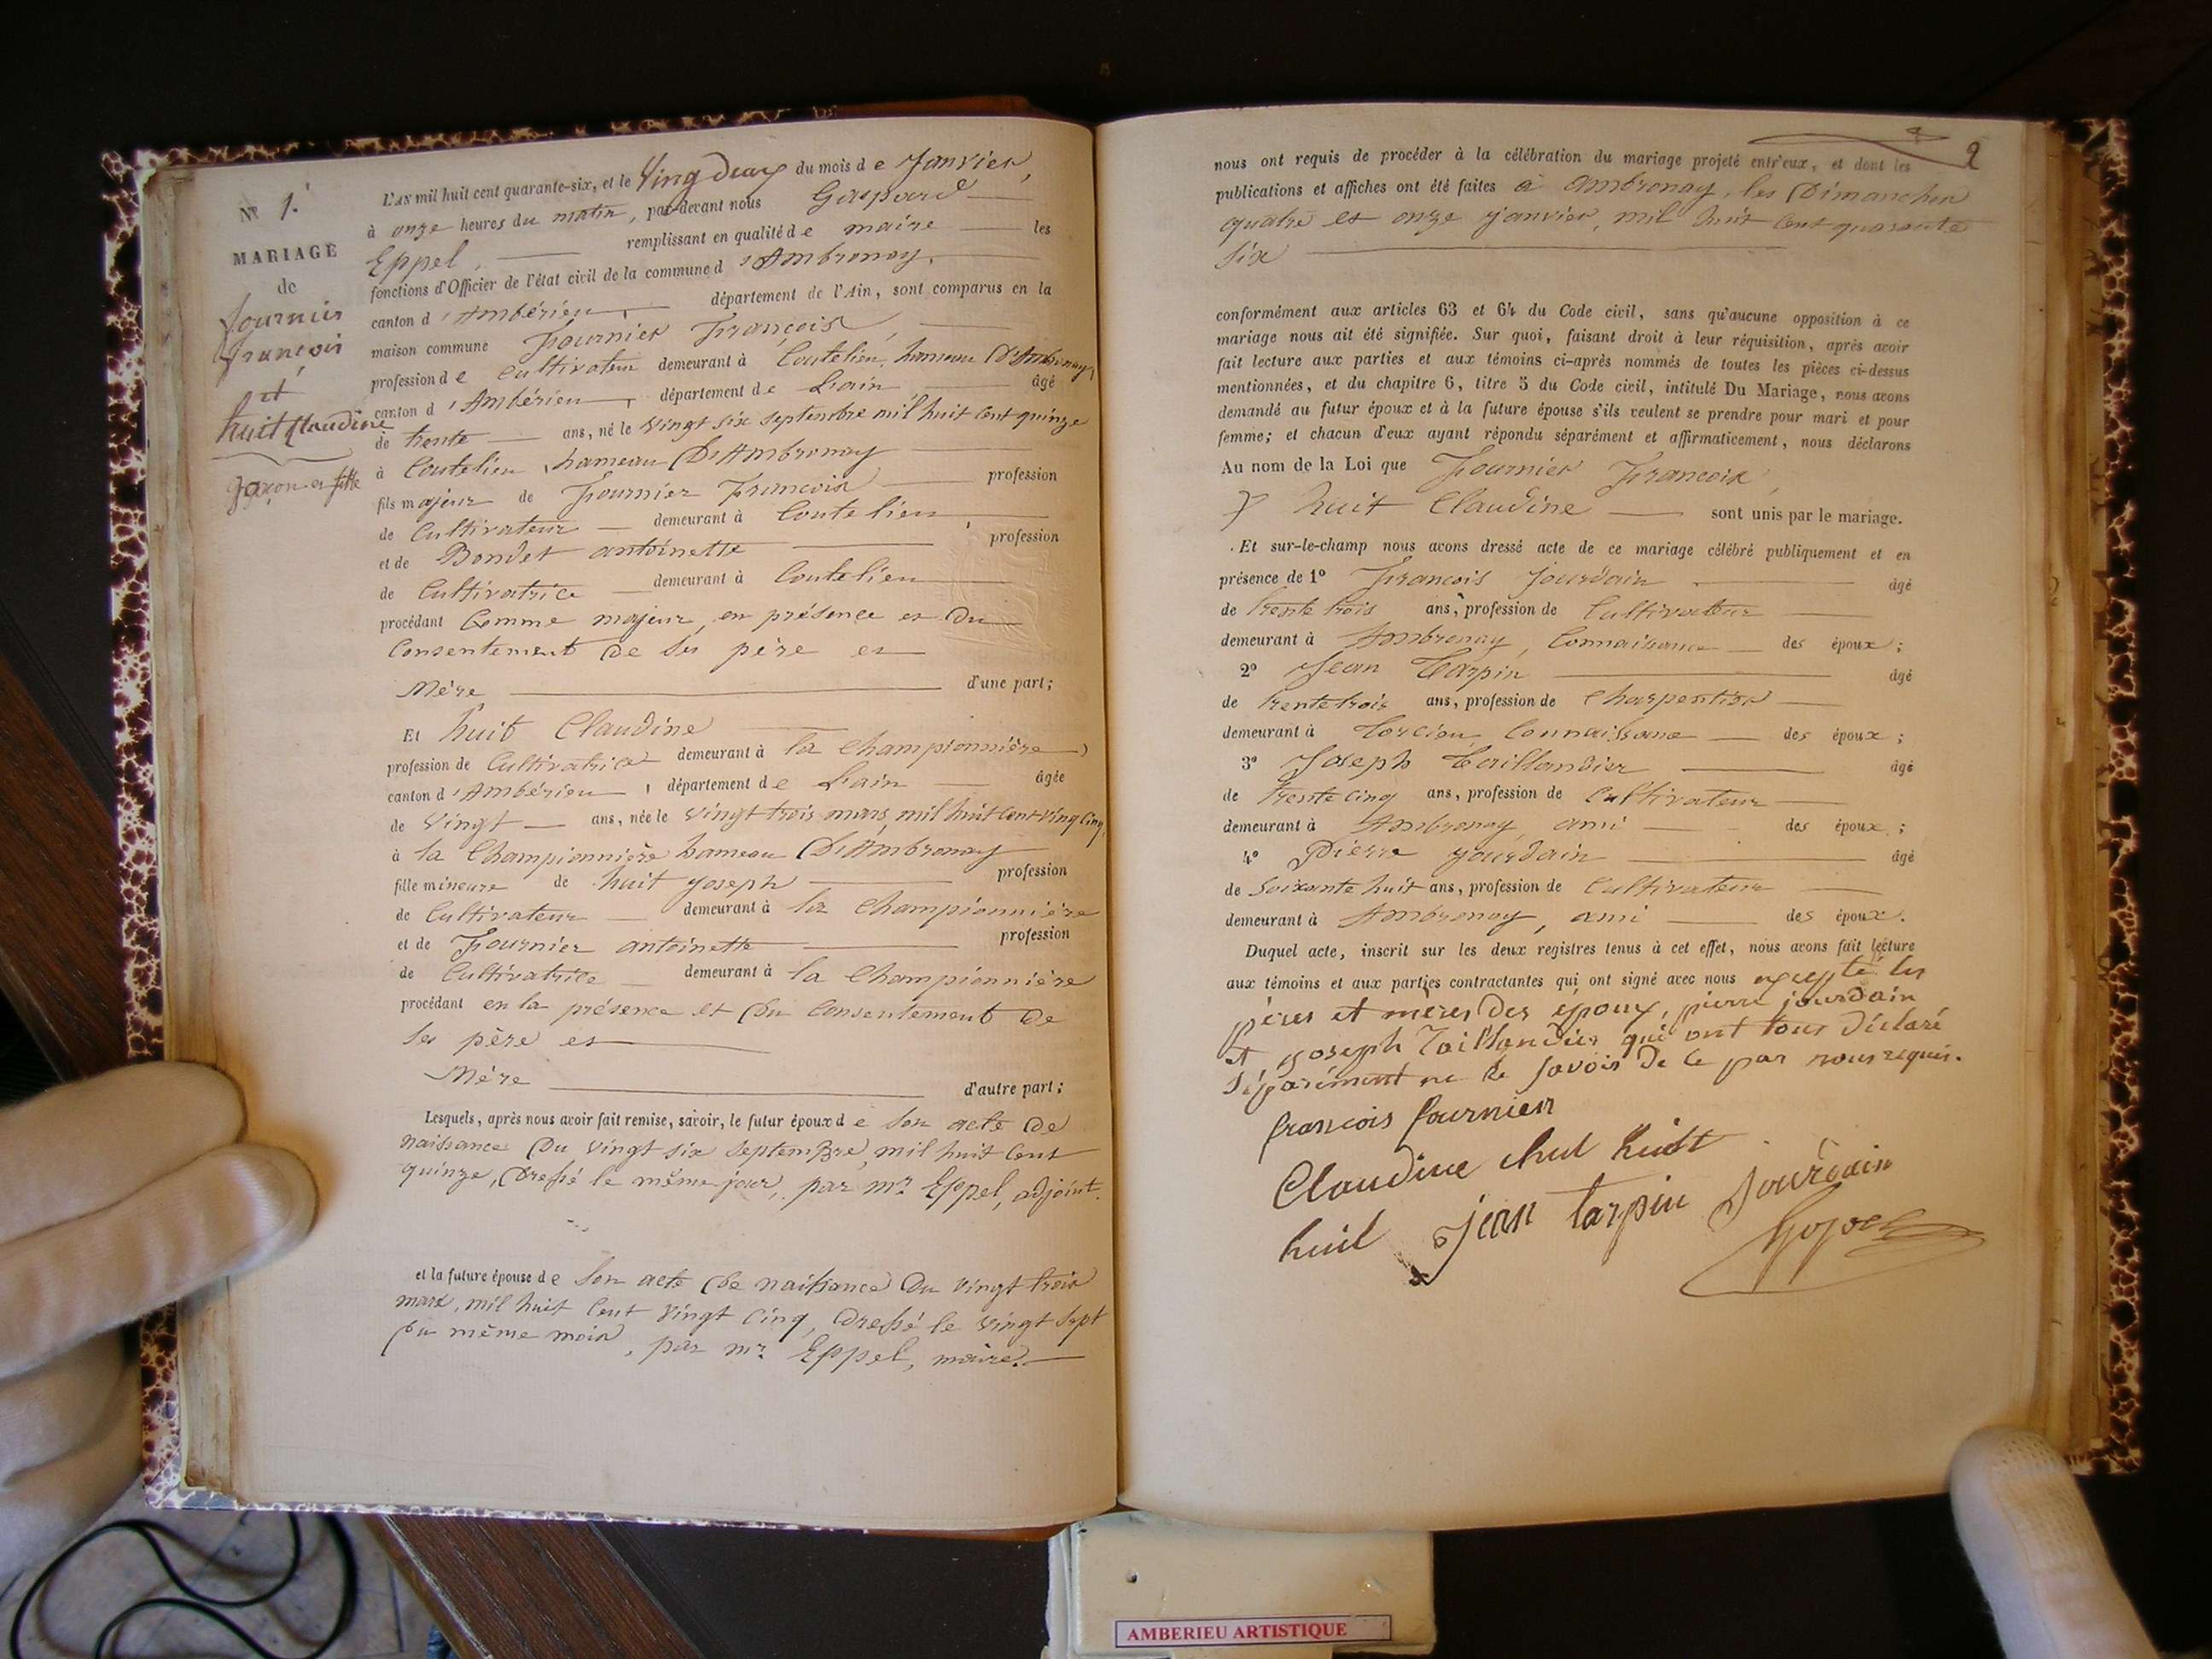 N° 1.
MARIAGE
de
fournier
françois
et
huit Claudine
garçon et fille
L'AN mil huit cent quarante-six, et le Vingt deux du mois de Janvier,
à onze heures du matin, par-devant nous Gaspard
Eppel, remplissant en qualité de maire les
fonctions d'Officier de l'état civil de la commune d'Ambronay,
canton d'Ambérieu, département de l'Ain, sont comparus en la
maison commune Fournier François,
profession de Cultivateur demeurant à Coutelieu, hameau D'Ambronay,
canton d'Ambérieu, département de Lain âgé
de trente ans, né le vingt six septembre mil huit cent quinze
à Coutelieu, hameau D'Ambronay
fils majeur de Fournier François profession
de Cultivateur demeurant à Coutelieu,
et de Bondet antoinette profession
de Cultivatrice demeurant à Coutelieu
procédant Comme majeur, en présence et Du
Consentement de Ses père et
Mère d'une part;
Et huit Claudine
profession de Cultivatrice demeurant à la Championnière,
canton d'Ambérieu, département de Lain âgée
de Vingt ans, née le vingt trois mars, mil huit Cent vingt Cinq,
à la Championnière hameau D'Ambronay
fille mineure de huit joseph profession
de Cultivateur demeurant à la Championnière
et de Fournier antoinette profession
de Cultivatrice demeurant à la Championnière
procédant en la présence et Du Consentement De
Ses père et
Mère d'autre part;
Lesquels, après nous avoir fait remise, savoir, le futur époux de Son acte De
naissance Du vingt six Septembre, mil huit Cent
quinze, Dressé le même jour, par mr. Eppel, adjoint.
et la future épouse de Son acte De naissance Du vingt trois
mars, mil huit Cent vingt Cinq, Dressé le vingt Sept
Du même mois, par mr. Eppel, maire.
2
nous ont requis de procéder à la célébration du mariage projeté entr'eux, et dont les
publications et affiches ont été faites à Ambronay, les Dimanches
quatre et onze janvier, mil huit Cent quarante
Six
conformément aux articles 63 et 64 du Code civil, sans qu'aucune opposition à ce
mariage nous ait été signifiée. Sur quoi, faisant droit à leur réquisition, après avoir
fait lecture aux parties et aux témoins ci-après nommés de toutes les pièces ci-dessus
mentionnées, et du chapitre 6, titre 5 du Code civil, intitulé Du Mariage, nous avons
demandé au futur époux et à la future épouse s'ils veulent se prendre pour mari et pour
femme; et chacun d'eux ayant répondu séparément et affirmativement, nous déclarons
Au nom de la Loi que Fournier François,
& huit Claudine sont unis par le mariage.
Et sur-le-champ nous avons dressé acte de ce mariage célébré publiquement et en
présence de 1° François Jourdain âgé
de trente trois ans, profession de Cultivateur
demeurant à Ambronay, Connaissance des époux;
2° Jean Tarpin âgé
de trente trois ans, profession de Charpentier
demeurant à Torcieu Connaissance des époux;
3° Joseph Taillandier âgé
de trente cinq ans, profession de Cultivateur
demeurant à Ambronay, ami des époux;
4° Pierre jourdain âgé
de Soixante huit ans, profession de Cultivateur
demeurant à Ambronay, ami des époux.
Duquel acte, inscrit sur les deux registres tenus à cet effet, nous avons fait lecture
aux témoins et aux parties contractantes qui ont signé avec nous excepté les
pères et mères des époux, pierre jourdain
et joseph Taillandier qui ont tous déclaré
Séparément ne le savoir de ce par nous requis.
françois fournier
Claudine huit
huit jean tarpin Jourdain
AMBERIEU ARTISTIQUE